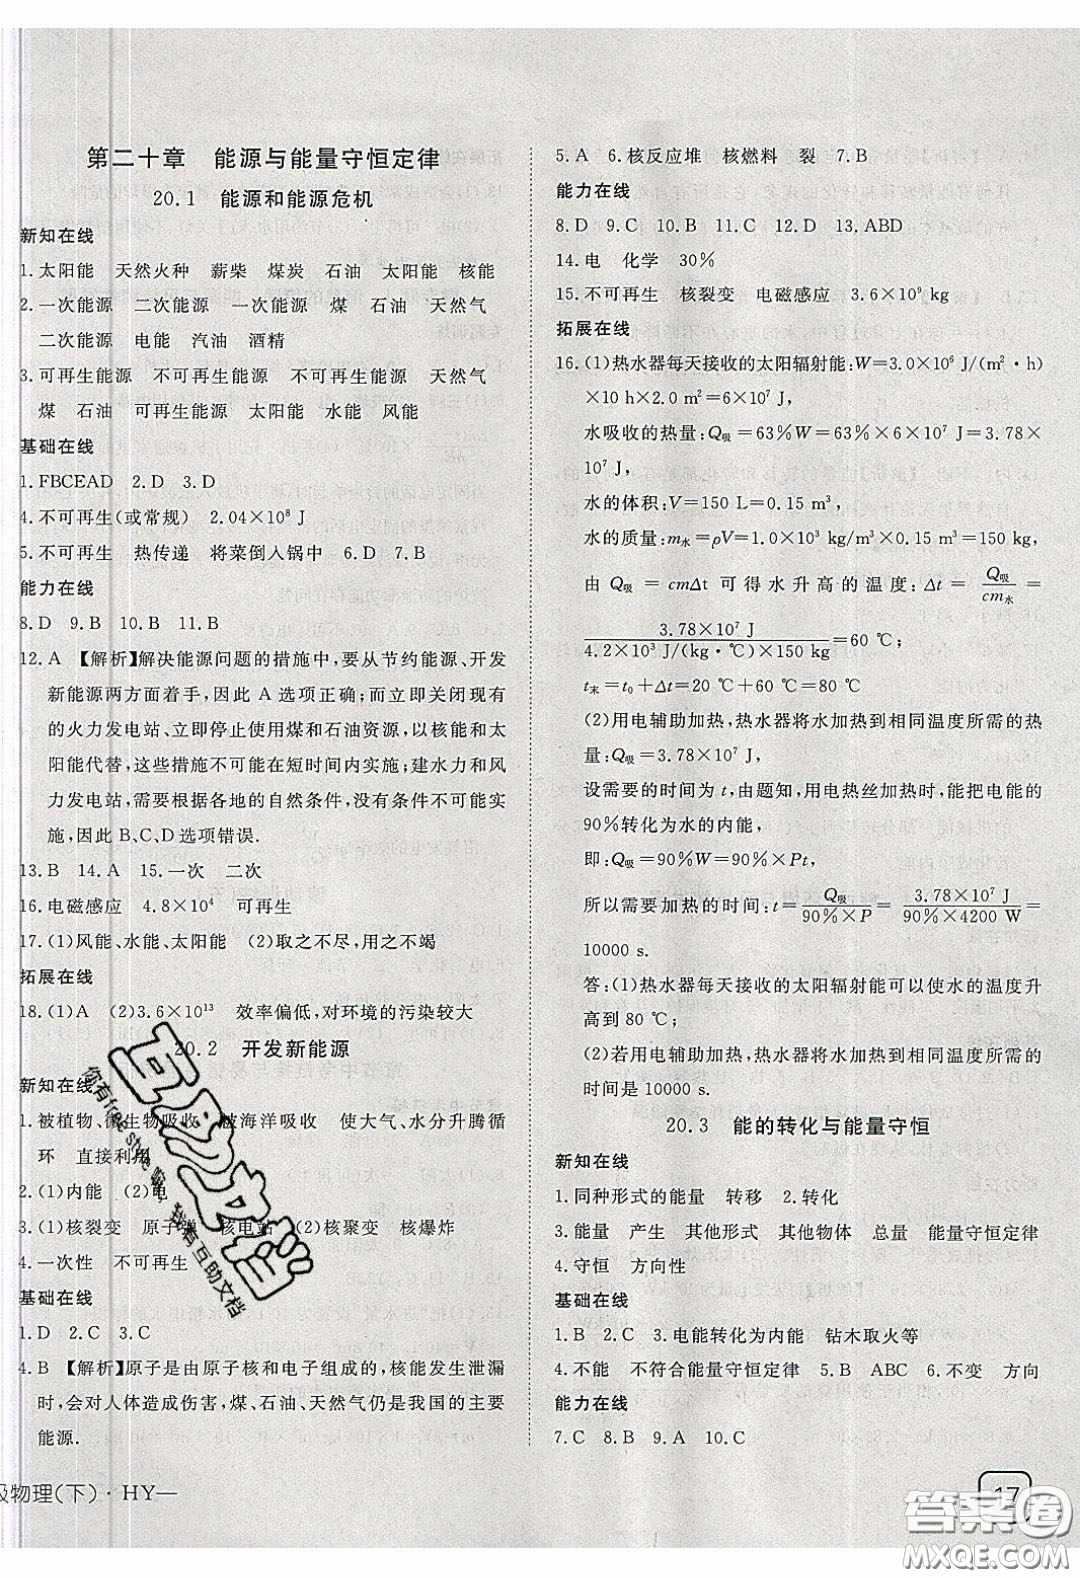 第二十章 能源与能量守恒定律
20.1 能源和能源危机
新知在线
1.太阳能 天然火种 薪柴 煤炭 石油 太阳能 核能
2.一次能源 二次能源 一次能源 煤 石油 天然气
二次能源 电能 汽油 酒精
3.可再生能源 不可再生能源 不可再生能源 天然气
煤 石油 可再生能源 太阳能 水能 风能
基础在线
1.FBCEAD 2.D 3.D
4.不可再生(或常规) 2.04×10⁸ J
5.不可再生 热传递 将菜倒入锅中 6.D 7.B
能力在线
8.D 9.B 10.B 11.B
12.A 【解析】解决能源问题的措施中,要从节约能源、开发
新能源两方面着手,因此 A 选项正确;而立即关闭现有
的火力发电站、立即停止使用煤和石油资源,以核能和太
阳能代替,这些措施不可能在短时间内实施;建水力和风
力发电站,需要根据各地的自然条件,没有条件不可能实
施,因此 B、C、D 选项错误.
13.B 14.A 15.一次 二次
16.电磁感应 4.8×10⁴ 可再生
17.(1)风能、水能、太阳能 (2)取之不尽,用之不竭
拓展在线
18.(1)A (2)3.6×10¹³ 效率偏低,对环境的污染较大
20.2 开发新能源
新知在线
1.被植物、微生物吸收 被海洋吸收 使大气、水分升腾循
环 直接利用
2.(1)内能 (2)电
3.(1)核裂变 原子弹 核电站 (2)核聚变 核爆炸
4.一次性 不可再生
基础在线
1.D 2.C 3.C
4.B 【解析】原子是由原子核和电子组成的,核能发生泄漏
时,会对人体造成伤害,煤、石油、天然气仍是我国的主要
能源.
级物理(下)·HY—
5.A 6.核反应堆 核燃料 裂 7.B
能力在线
8.D 9.C 10.B 11.C 12.D 13.ABD
14.电 化学 30%
15.不可再生 核裂变 电磁感应 3.6×10⁹ kg
拓展在线
16.(1)热水器每天接收的太阳辐射能:W=3.0×10⁶ J/(m²·h)
×10 h×2.0 m²=6×10⁷ J,
水吸收的热量:Q吸=63%W=63%×6×10⁷ J=3.78×
10⁷ J,
水的体积:V=150 L=0.15 m³,
水的质量:m水=ρV=1.0×10³ kg/m³×0.15 m³=150 kg,
由 Q吸=cmΔt 可得水升高的温度:Δt=Q吸/cm水=
3.78×10⁷ J/4.2×10³ J/(kg·℃)×150 kg=60 ℃;
t末=t₀+Δt=20 ℃+60 ℃=80 ℃
(2)用电辅助加热,热水器将水加热到相同温度所需的热
量:Q吸=3.78×10⁷ J,
设需要的时间为 t,由题知,用电热丝加热时,能把电能的
90%转化为水的内能,
即:Q吸=90%W=90%×Pt,
所以需要加热的时间:t=Q吸/90%×P=3.78×10⁷ J/90%×4200 W=
10000 s.
答:(1)热水器每天接收的太阳辐射能可以使水的温度升
高到 80 ℃;
(2)若用电辅助加热,热水器将水加热到相同温度所需的
时间是 10000 s.
20.3 能的转化与能量守恒
新知在线
1.同种形式的能量 转移 2.转化
3.能量 产生 其他形式 其他物体 总量 能量守恒定律
4.守恒 方向性
基础在线
1.B 2.C 3.电能转化为内能 钻木取火等
4.不能 不符合能量守恒定律 5.B ABC 6.不变 方向
能力在线
7.C 8.B 9.A 10.C
17
互助文档
你有free style 嘛,我有互助文档
答案圈
MXQE.COM